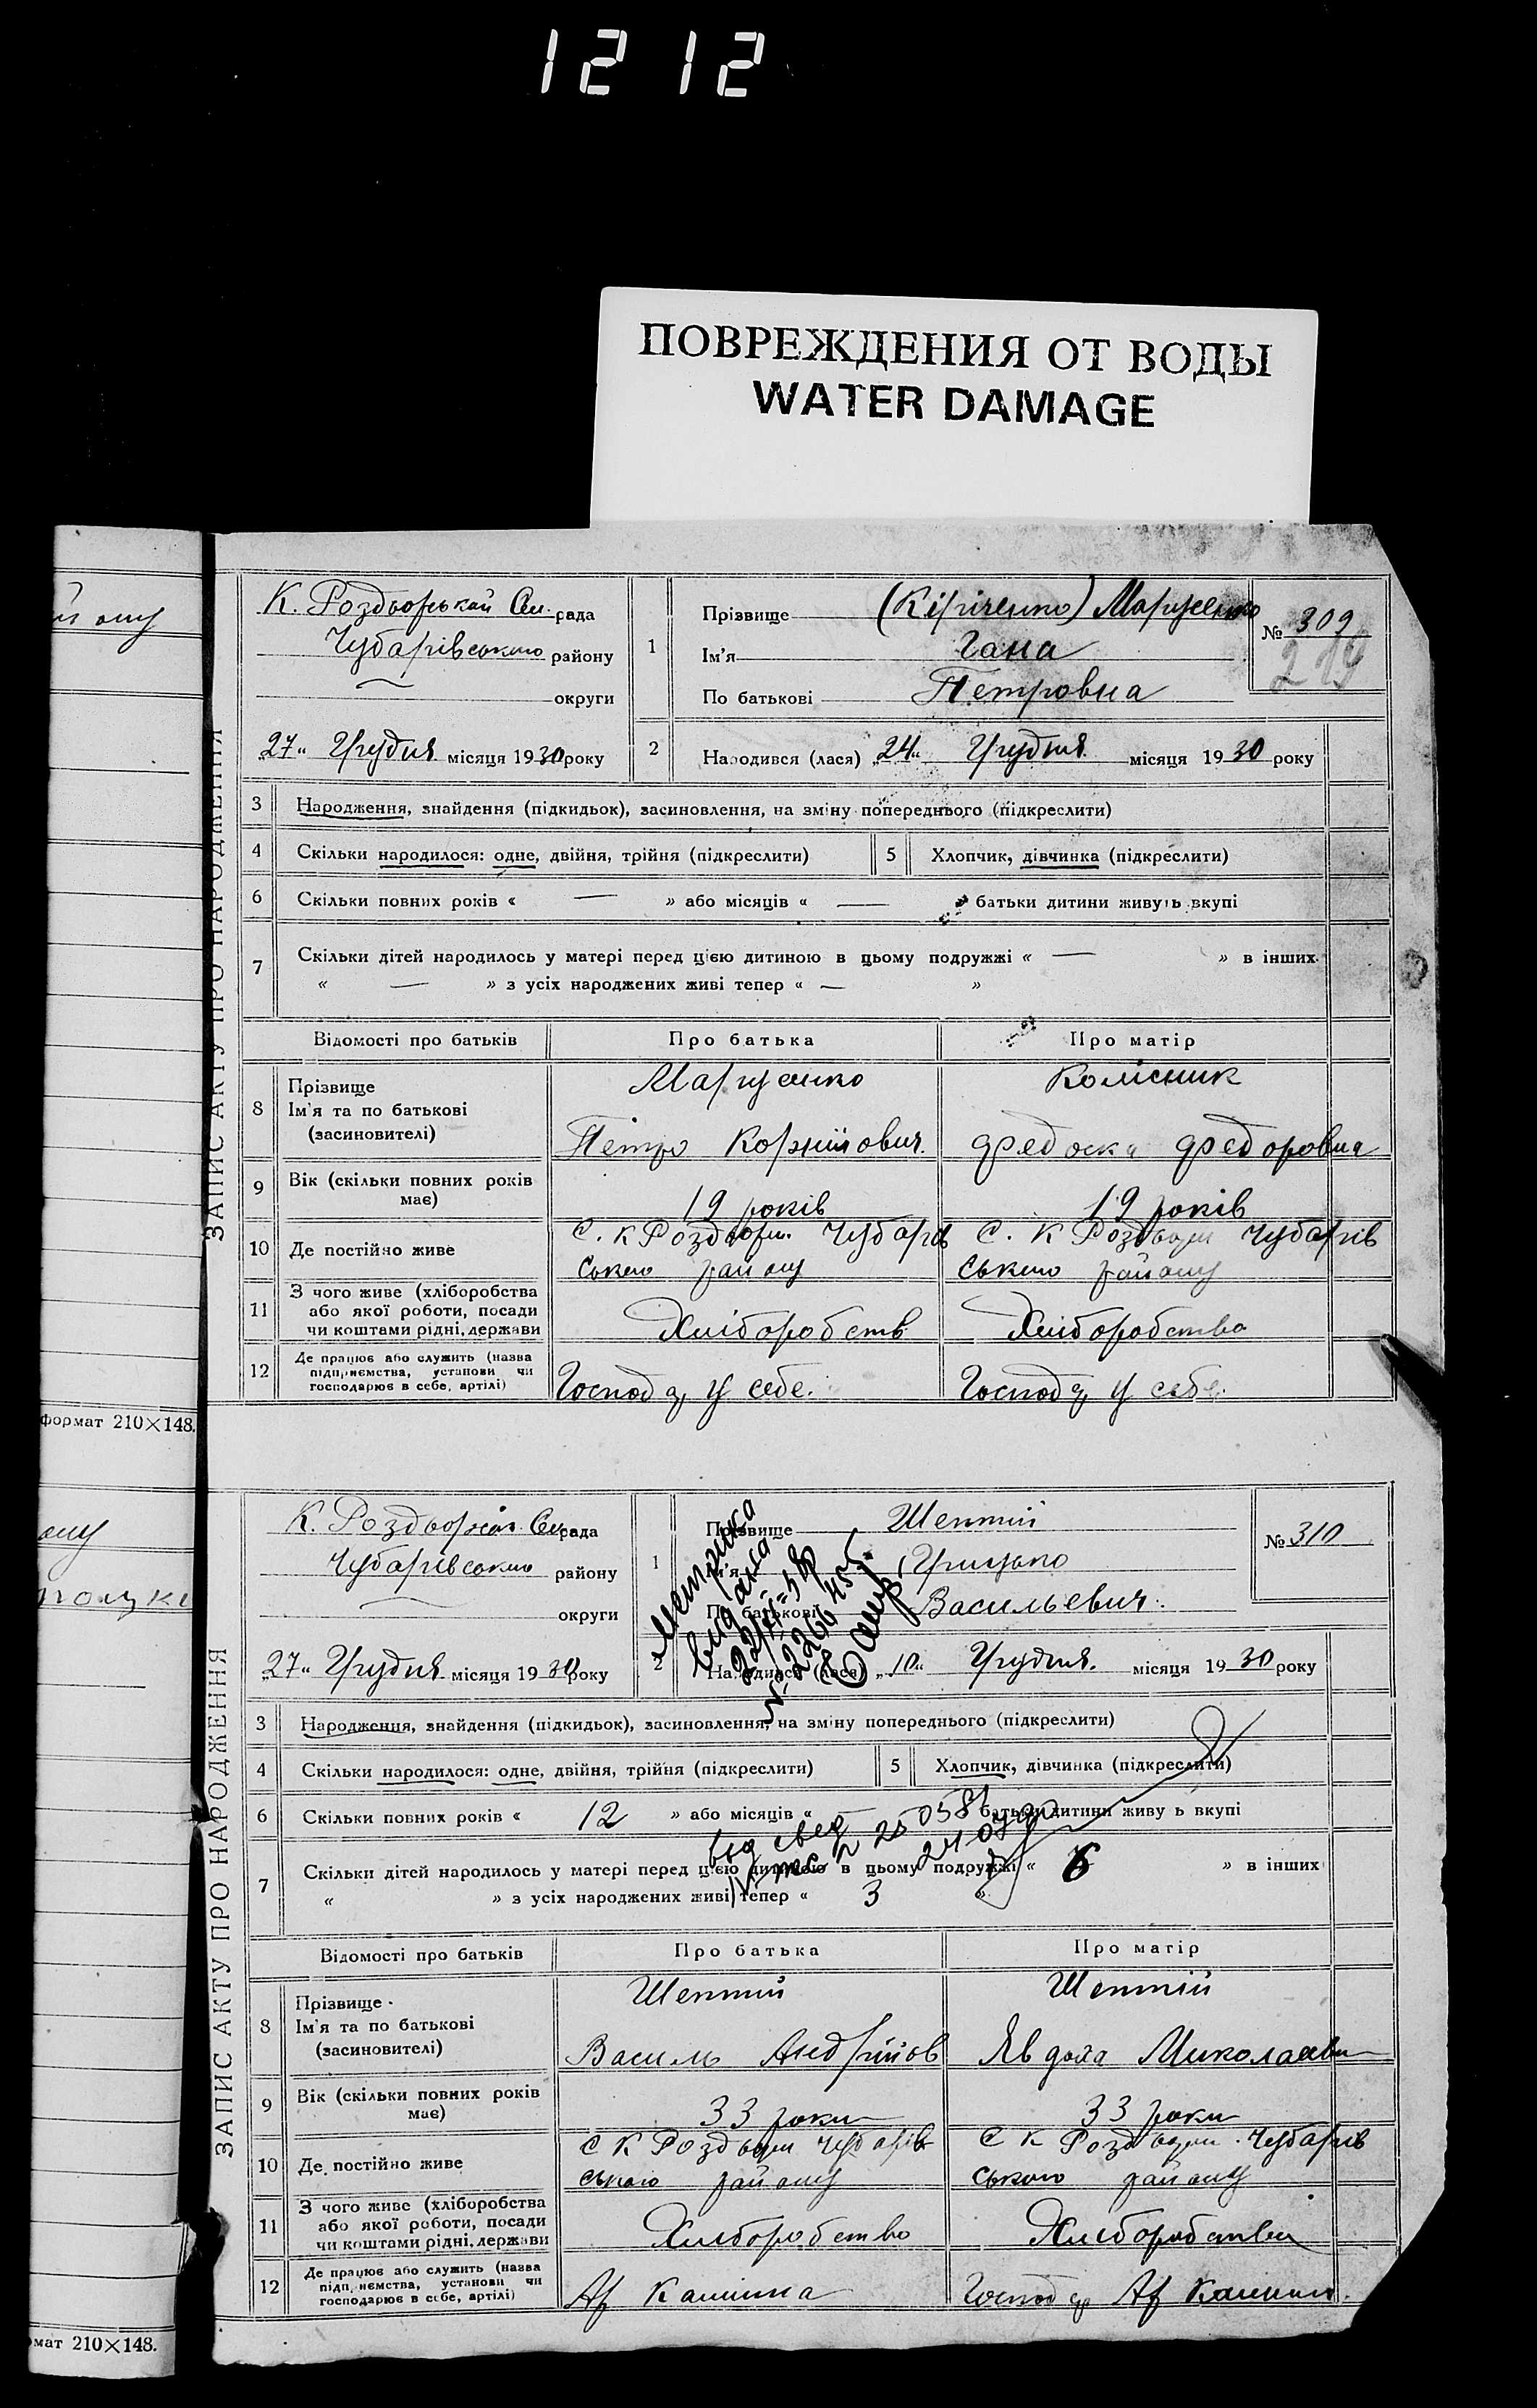 12 12
ПОВРЕЖДЕНИЯ ОТ ВОДЫ
WATER DAMAGE
формат 210×148.
ЗАПИС АКТУ ПРО НАРОДЖЕННЯ
К. Роздорський Сел. рада
Чубарівського району
округи
27" Грудня місяця 1930 року
1 Прізвище (Кіріченко) Марусенко
Ім'я Гана
По батькові Петровна
№ 309
2 Народився (лася) „24" Грудня місяця 1930 року
3 Народження, знайдення (підкидьок), засиновлення, на зміну попереднього (підкреслити)
4 Скільки народилося: одне, двійня, трійня (підкреслити) 5 Хлопчик, дівчинка (підкреслити)
6 Скільки повних років « — » або місяців « — батьки дитини живуть вкупі
7 Скільки дітей народилось у матері перед цією дитиною в цьому подружжі « — » в інших
« — » з усіх народжених живі тепер « — »
Відомості про батьків Про батька Про матір
8 Прізвище Марусенко Колісник
Ім'я та по батькові
(засиновителі) Петро Корнійович. Федоска Федоровна
9 Вік (скільки повних років має) 19 років 19 років
10 Де постійно живе С. К Роздори Чубарів С. К Роздори Чубарів
ського району ського району
11 З чого живе (хліборобства
або якої роботи, посади
чи коштами рідні, держави Хліборобств Хліборобство
12 Де працює або служить (назва
підприємства, установи чи
господарює в себе, артілі) Господ у себе. Господ у себе.
ЗАПИС АКТУ ПРО НАРОДЖЕННЯ
К. Роздорськ. Сел. рада
Чубарівського району
округи
27" Грудня місяця 1930 року
1 Прізвище Шептій
Ім'я Грицько
По батькові Васильевич.
№ 310
2 Народився (лася) „10" Грудня. місяця 1930 року
Метрика
видана
3 Народження, знайдення (підкидьок), засиновлення, на зміну попереднього (підкреслити)
4 Скільки народилося: одне, двійня, трійня (підкреслити) 5 Хлопчик, дівчинка (підкреслити)
6 Скільки повних років « 12 » або місяців « батьки дитини живу ь вкупі
7 Скільки дітей народилось у матері перед цією дитиною в цьому подружжі « 6 » в інших
« » з усіх народжених живі тепер « 3 »
Відомості про батьків Про батька Про матір
8 Прізвище Шептій Шептій
Ім'я та по батькові
(засиновителі) Василь Андрійов Явдоха Миколаевн
9 Вік (скільки повних років має) 33 роки 33 роки
10 Де постійно живе С К Роздори Чубарів С К Роздори Чубарів
ського району ського району
11 З чого живе (хліборобства
або якої роботи, посади
чи коштами рідні, держави Хліборобство Хліборобство
12 Де працює або служить (назва
підприємства, установи чи
господарює в себе, артілі)
мат 210×148.